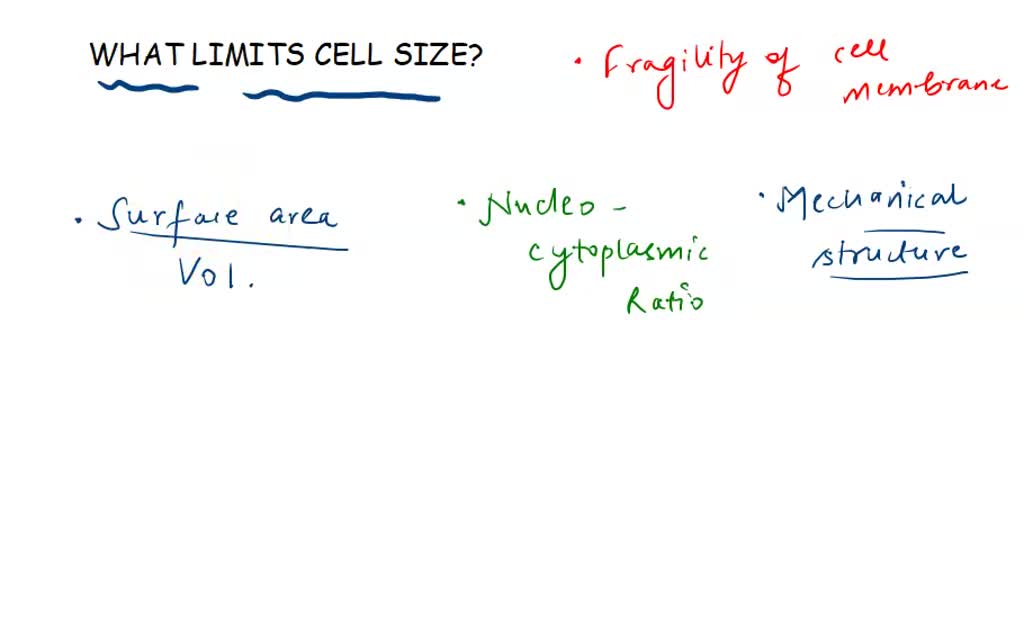 WHAT LIMITS CELL SIZE?
• Fragility of cell
membrane
• Surface area
Vol.
• Nucleo -
cytoplasmic
Ratio
• Mechanical
structure